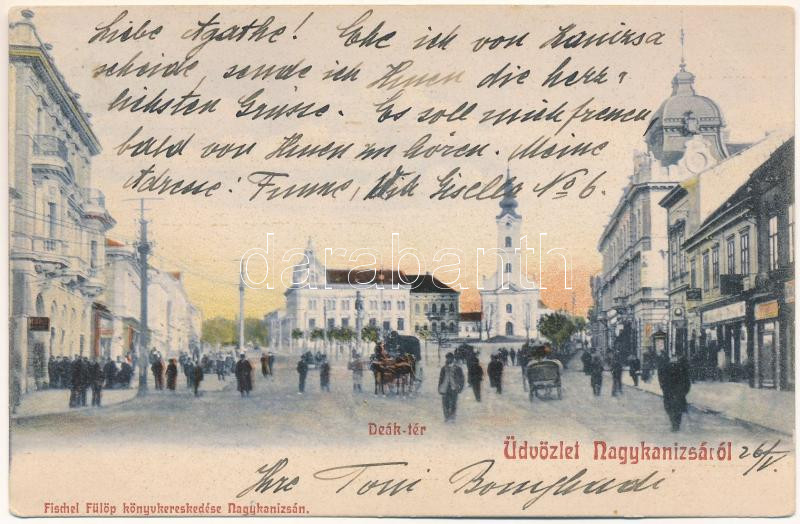 Liebe Agathe! Ehe ich von Kanizsa
scheide, sende ich Ihnen die herz=
lichsten Grüsse. Es soll mich freuen
bald von Ihnen zu hören. Meine
Adresse: Fiume, Gisella No 6.
darabanth
Deák-tér
Üdvözlet Nagykanizsáról 26/V.
Ihre Toni
Fischel Fülöp könyvkereskedése Nagykanizsán.